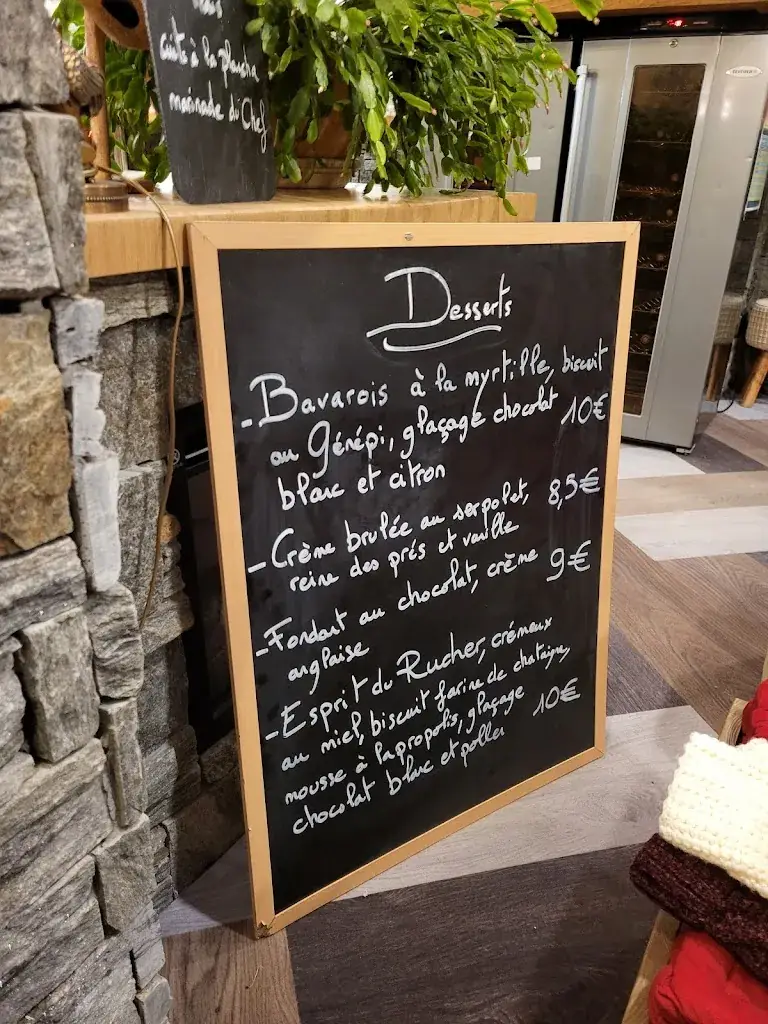 cuits à la plancha
marinade du Chef
Desserts
- Bavarois à la myrtille, biscuit
au Génépi, glaçage chocolat 10€
blanc et citron
- Crème brulée au serpolet, 8,5€
reine des prés et vanille
- Fondant au chocolat, crème 9€
anglaise
- Esprit du Rucher, crémeux
au miel, biscuit farine de chataigne,
mousse à la propolis, glaçage 10€
chocolat blanc et pollen